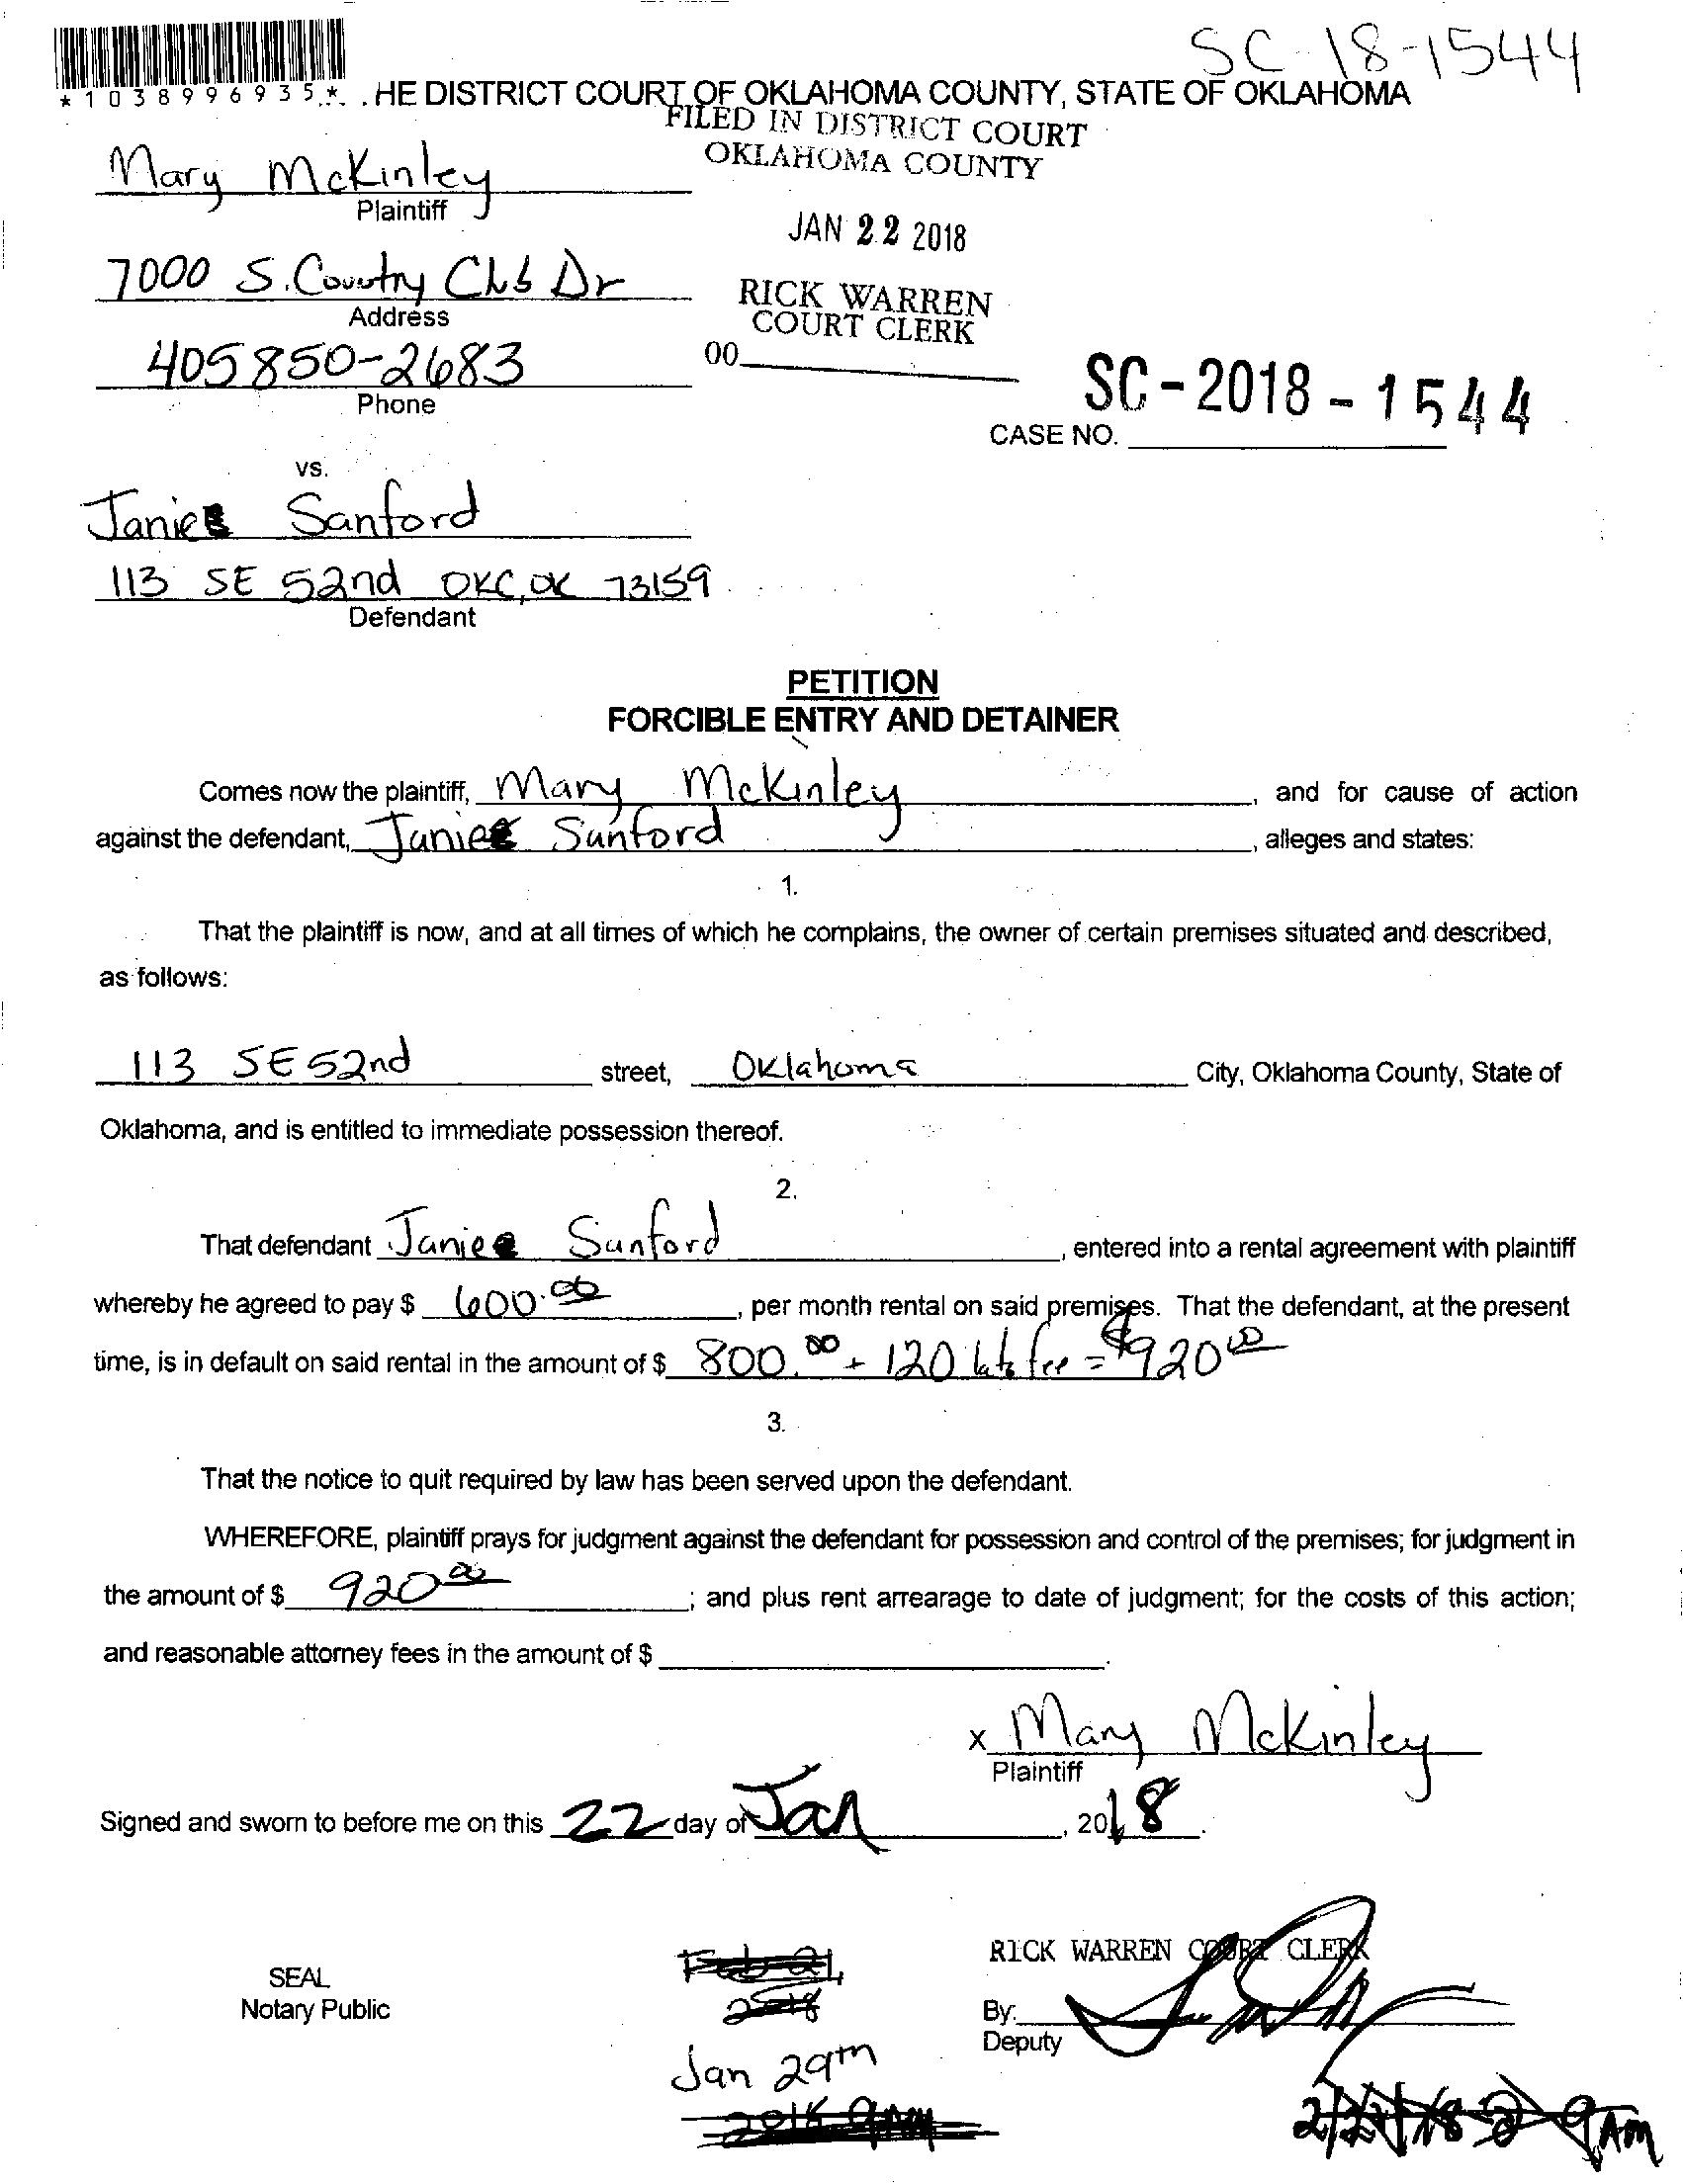 SC-18-1544
*1038996935* HE DISTRICT COURT OF OKLAHOMA COUNTY, STATE OF OKLAHOMA
FILED IN DISTRICT COURT
OKLAHOMA COUNTY
Mary McKinley
Plaintiff
JAN 22 2018
7000 S. Country Club Dr
Address
RICK WARREN
COURT CLERK
405 850-2683
Phone
00
SC-2018-1544
CASE NO.
vs.
Janice Sanford
113 SE 52nd OKC, OK 73159
Defendant
PETITION
FORCIBLE ENTRY AND DETAINER
Comes now the plaintiff, Mary McKinley, and for cause of action
against the defendant, Janice Sanford, alleges and states:
1.
That the plaintiff is now, and at all times of which he complains, the owner of certain premises situated and described,
as follows:
113 SE 52nd street, Oklahoma City, Oklahoma County, State of
Oklahoma, and is entitled to immediate possession thereof.
2.
That defendant Janice Sanford, entered into a rental agreement with plaintiff
whereby he agreed to pay $ 600.00, per month rental on said premises. That the defendant, at the present
time, is in default on said rental in the amount of $ 800.00 + 120 late fee = $920 00
3.
That the notice to quit required by law has been served upon the defendant.
WHEREFORE, plaintiff prays for judgment against the defendant for possession and control of the premises; for judgment in
the amount of $ 920 00; and plus rent arrearage to date of judgment; for the costs of this action;
and reasonable attorney fees in the amount of $.
x Mary McKinley
Plaintiff
Signed and sworn to before me on this 22 day of Jan, 2018.
SEAL
Notary Public
Feb 21,
2018
RICK WARREN COURT CLERK
By:
Deputy
Jan 29th
2018 9AM
9AM